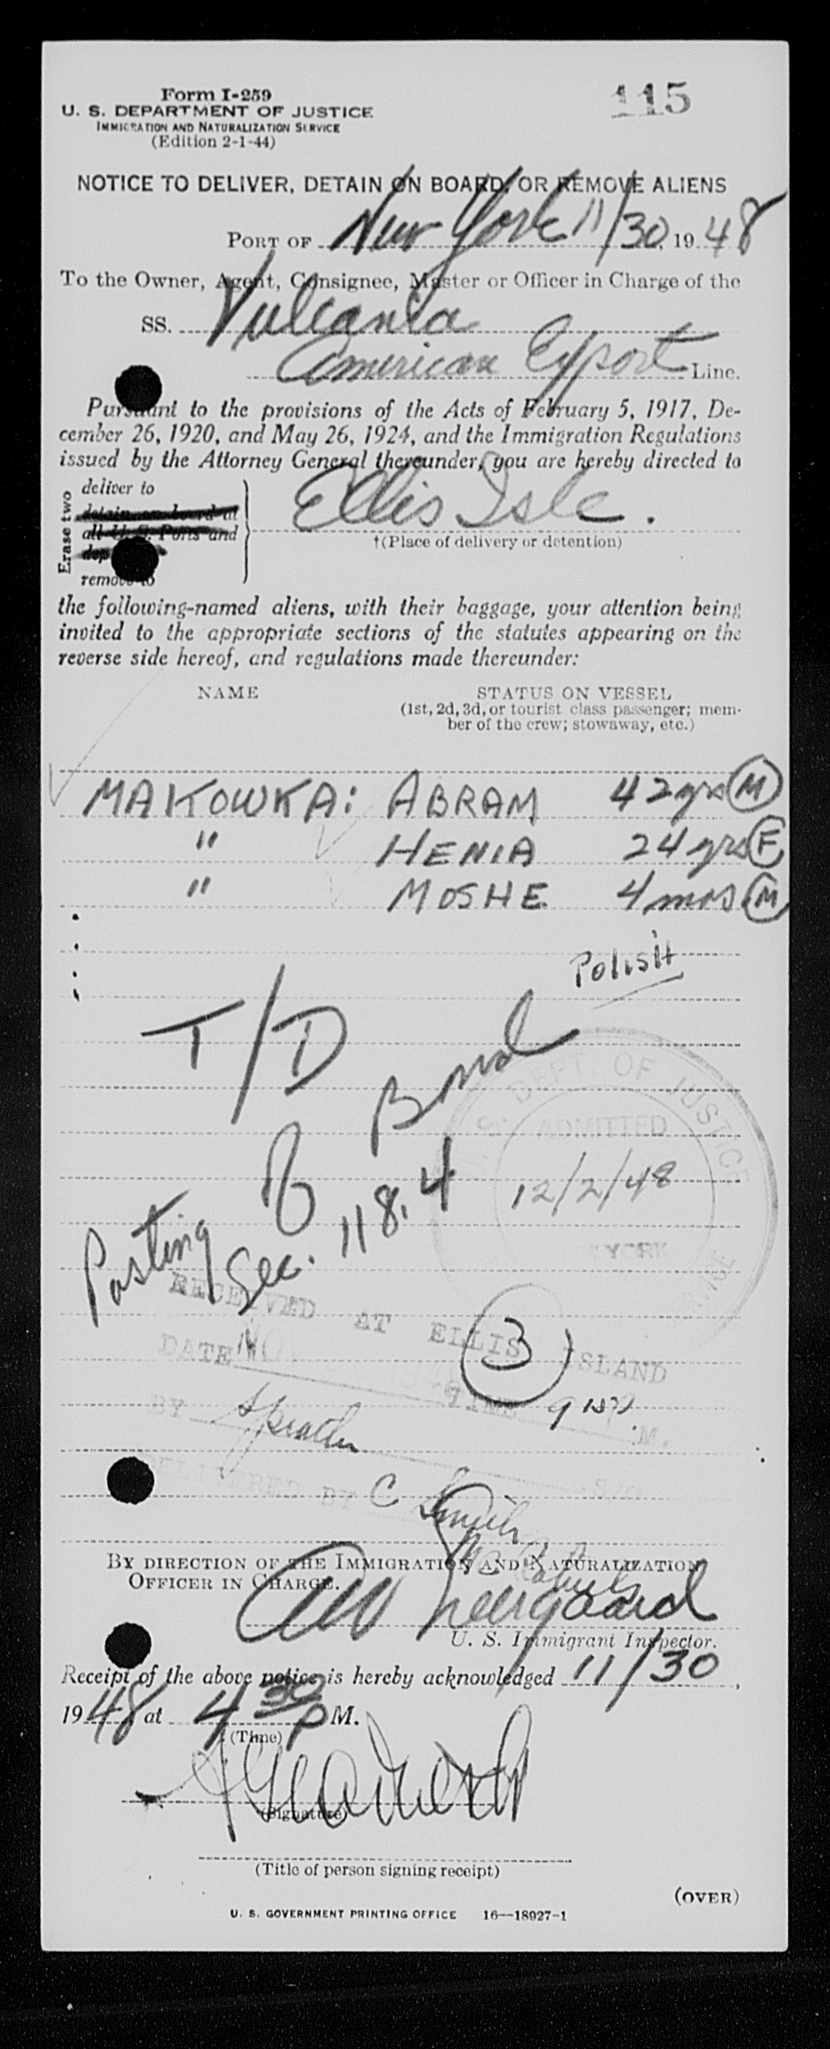 Form I-259
115
U. S. DEPARTMENT OF JUSTICE
IMMIGRATION AND NATURALIZATION SERVICE
(Edition 2-1-44)
NOTICE TO DELIVER, DETAIN ON BOARD, OR REMOVE ALIENS
PORT OF New York 11/30, 1948
To the Owner, Agent, Consignee, Master or Officer in Charge of the
SS. Vulcania
American Export Line.
Pursuant to the provisions of the Acts of February 5, 1917, De-
cember 26, 1920, and May 26, 1924, and the Immigration Regulations
issued by the Attorney General thereunder, you are hereby directed to
Erase two
deliver to
detain on board at
all U. S. Ports and
dep
remove to
Ellis Isle.
†(Place of delivery or detention)
the following-named aliens, with their baggage, your attention being
invited to the appropriate sections of the statutes appearing on the
reverse side hereof, and regulations made thereunder:
NAME STATUS ON VESSEL
(1st, 2d, 3d, or tourist class passenger; mem-
ber of the crew; stowaway, etc.)
MAKOWKA: ABRAM 42 yrs M
" HENIA 24 yrs F
" MOSHE 4 mos M
Polish
T/D
Bond
Posting
Sec. 118.4
U. S. DEPT. OF JUSTICE
ADMITTED
12/2/48
RECEIVED AT ELLIS ISLAND
DATE NO
3
TIME 9 M.
BY
DELIVERED BY C Smith
BY DIRECTION OF THE IMMIGRATION AND NATURALIZATION
OFFICER IN CHARGE.
U. S. Immigrant Inspector.
Receipt of the above notice is hereby acknowledged 11/30,
1948 at 4 30 P M.
(Time)
(Signature)
(Title of person signing receipt)
(OVER)
U. S. GOVERNMENT PRINTING OFFICE 16—18927-1